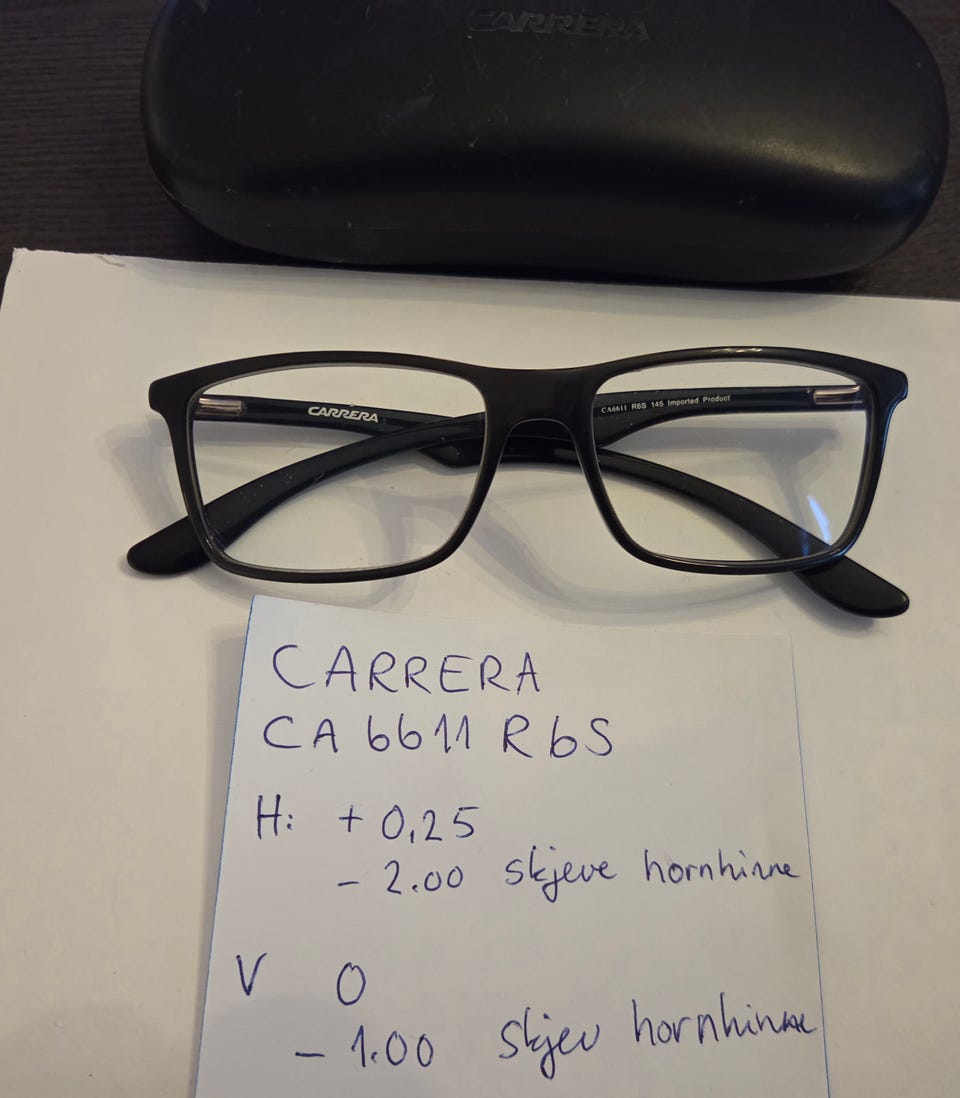 CARRERA
CARRERA
CA6611 R6S 145 Imported Product
CARRERA
CA 6611 R6S
H: + 0,25
- 2.00 skjeve hornhinne
V 0
- 1.00 skjev hornhinne